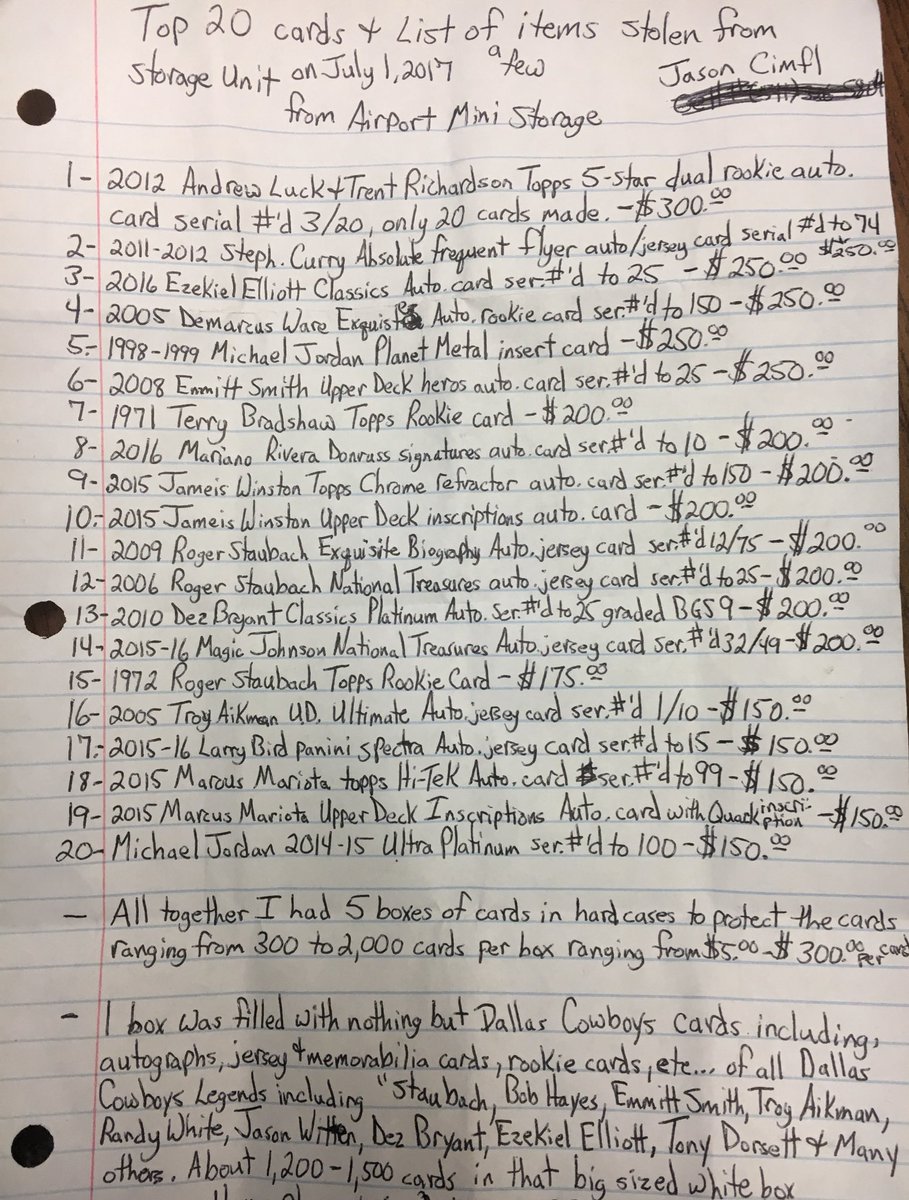 Top 20 cards & List of items stolen from
Storage Unit on July 1, 2017 a few Jason Cimfl
from Airport Mini Storage
1- 2012 Andrew Luck & Trent Richardson Topps 5-star dual rookie auto.
card serial #'d 3/20, only 20 cards made. - $300.00
2- 2011-2012 Steph. Curry Absolute frequent flyer auto/jersey card serial #'d to 74 $250.00
3- 2016 Ezekiel Elliott Classics Auto. card ser.#'d to 25 - $250.00
4- 2005 Demarcus Ware Exquisite Auto. rookie card ser.#'d to 150 - $250.00
5.- 1998-1999 Michael Jordan Planet Metal insert card - $250.00
6- 2008 Emmitt Smith Upper Deck heros auto. card ser.#'d to 25 - $250.00
7- 1971 Terry Bradshaw Topps Rookie card - $200.00
8- 2016 Mariano Rivera Donruss signatures auto. card ser.#'d to 10 - $200.00
9- 2015 Jameis Winston Topps Chrome refractor auto. card ser.#'d to 150 - $200.00
10.- 2015 Jameis Winston Upper Deck inscriptions auto. card - $200.00
11- 2009 Roger Staubach Exquisite Biography Auto. jersey card ser.#'d 12/75 - $200.00
12- 2006 Roger Staubach National Treasures auto. jersey card ser.#'d to 25 - $200.00
13- 2010 Dez Bryant Classics Platinum Auto. Ser.#'d to 25 graded BGS 9 - $200.00
14- 2015-16 Magic Johnson National Treasures Auto. jersey card ser.#'d 32/49 - $200.00
15- 1972 Roger Staubach Topps Rookie Card - $175.00
16- 2005 Troy Aikman UD. Ultimate Auto. jersey card ser.#'d 1/10 - $150.00
17.- 2015-16 Larry Bird panini spectra Auto. jersey card ser.#'d to 15 - $150.00
18- 2015 Marcus Mariota topps Hi-Tek Auto. card ser.#'d to 99 - $150.00
19- 2015 Marcus Mariota Upper Deck Inscriptions Auto. card with Quack inscri-ption - $150.00
20- Michael Jordan 2014-15 Ultra Platinum ser.#'d to 100 - $150.00
- All together I had 5 boxes of cards in hard cases to protect the cards
ranging from 300 to 2,000 cards per box ranging from $5.00 - $300.00 per card
- 1 box was filled with nothing but Dallas Cowboys cards including,
autographs, jersey & memorabilia cards, rookie cards, etc... of all Dallas
Cowboys Legends including "Staubach, Bob Hayes, Emmitt Smith, Troy Aikman,
Randy White, Jason Witten, Dez Bryant, Ezekiel Elliott, Tony Dorsett & Many
others. About 1,200-1,500 cards in that big sized white box